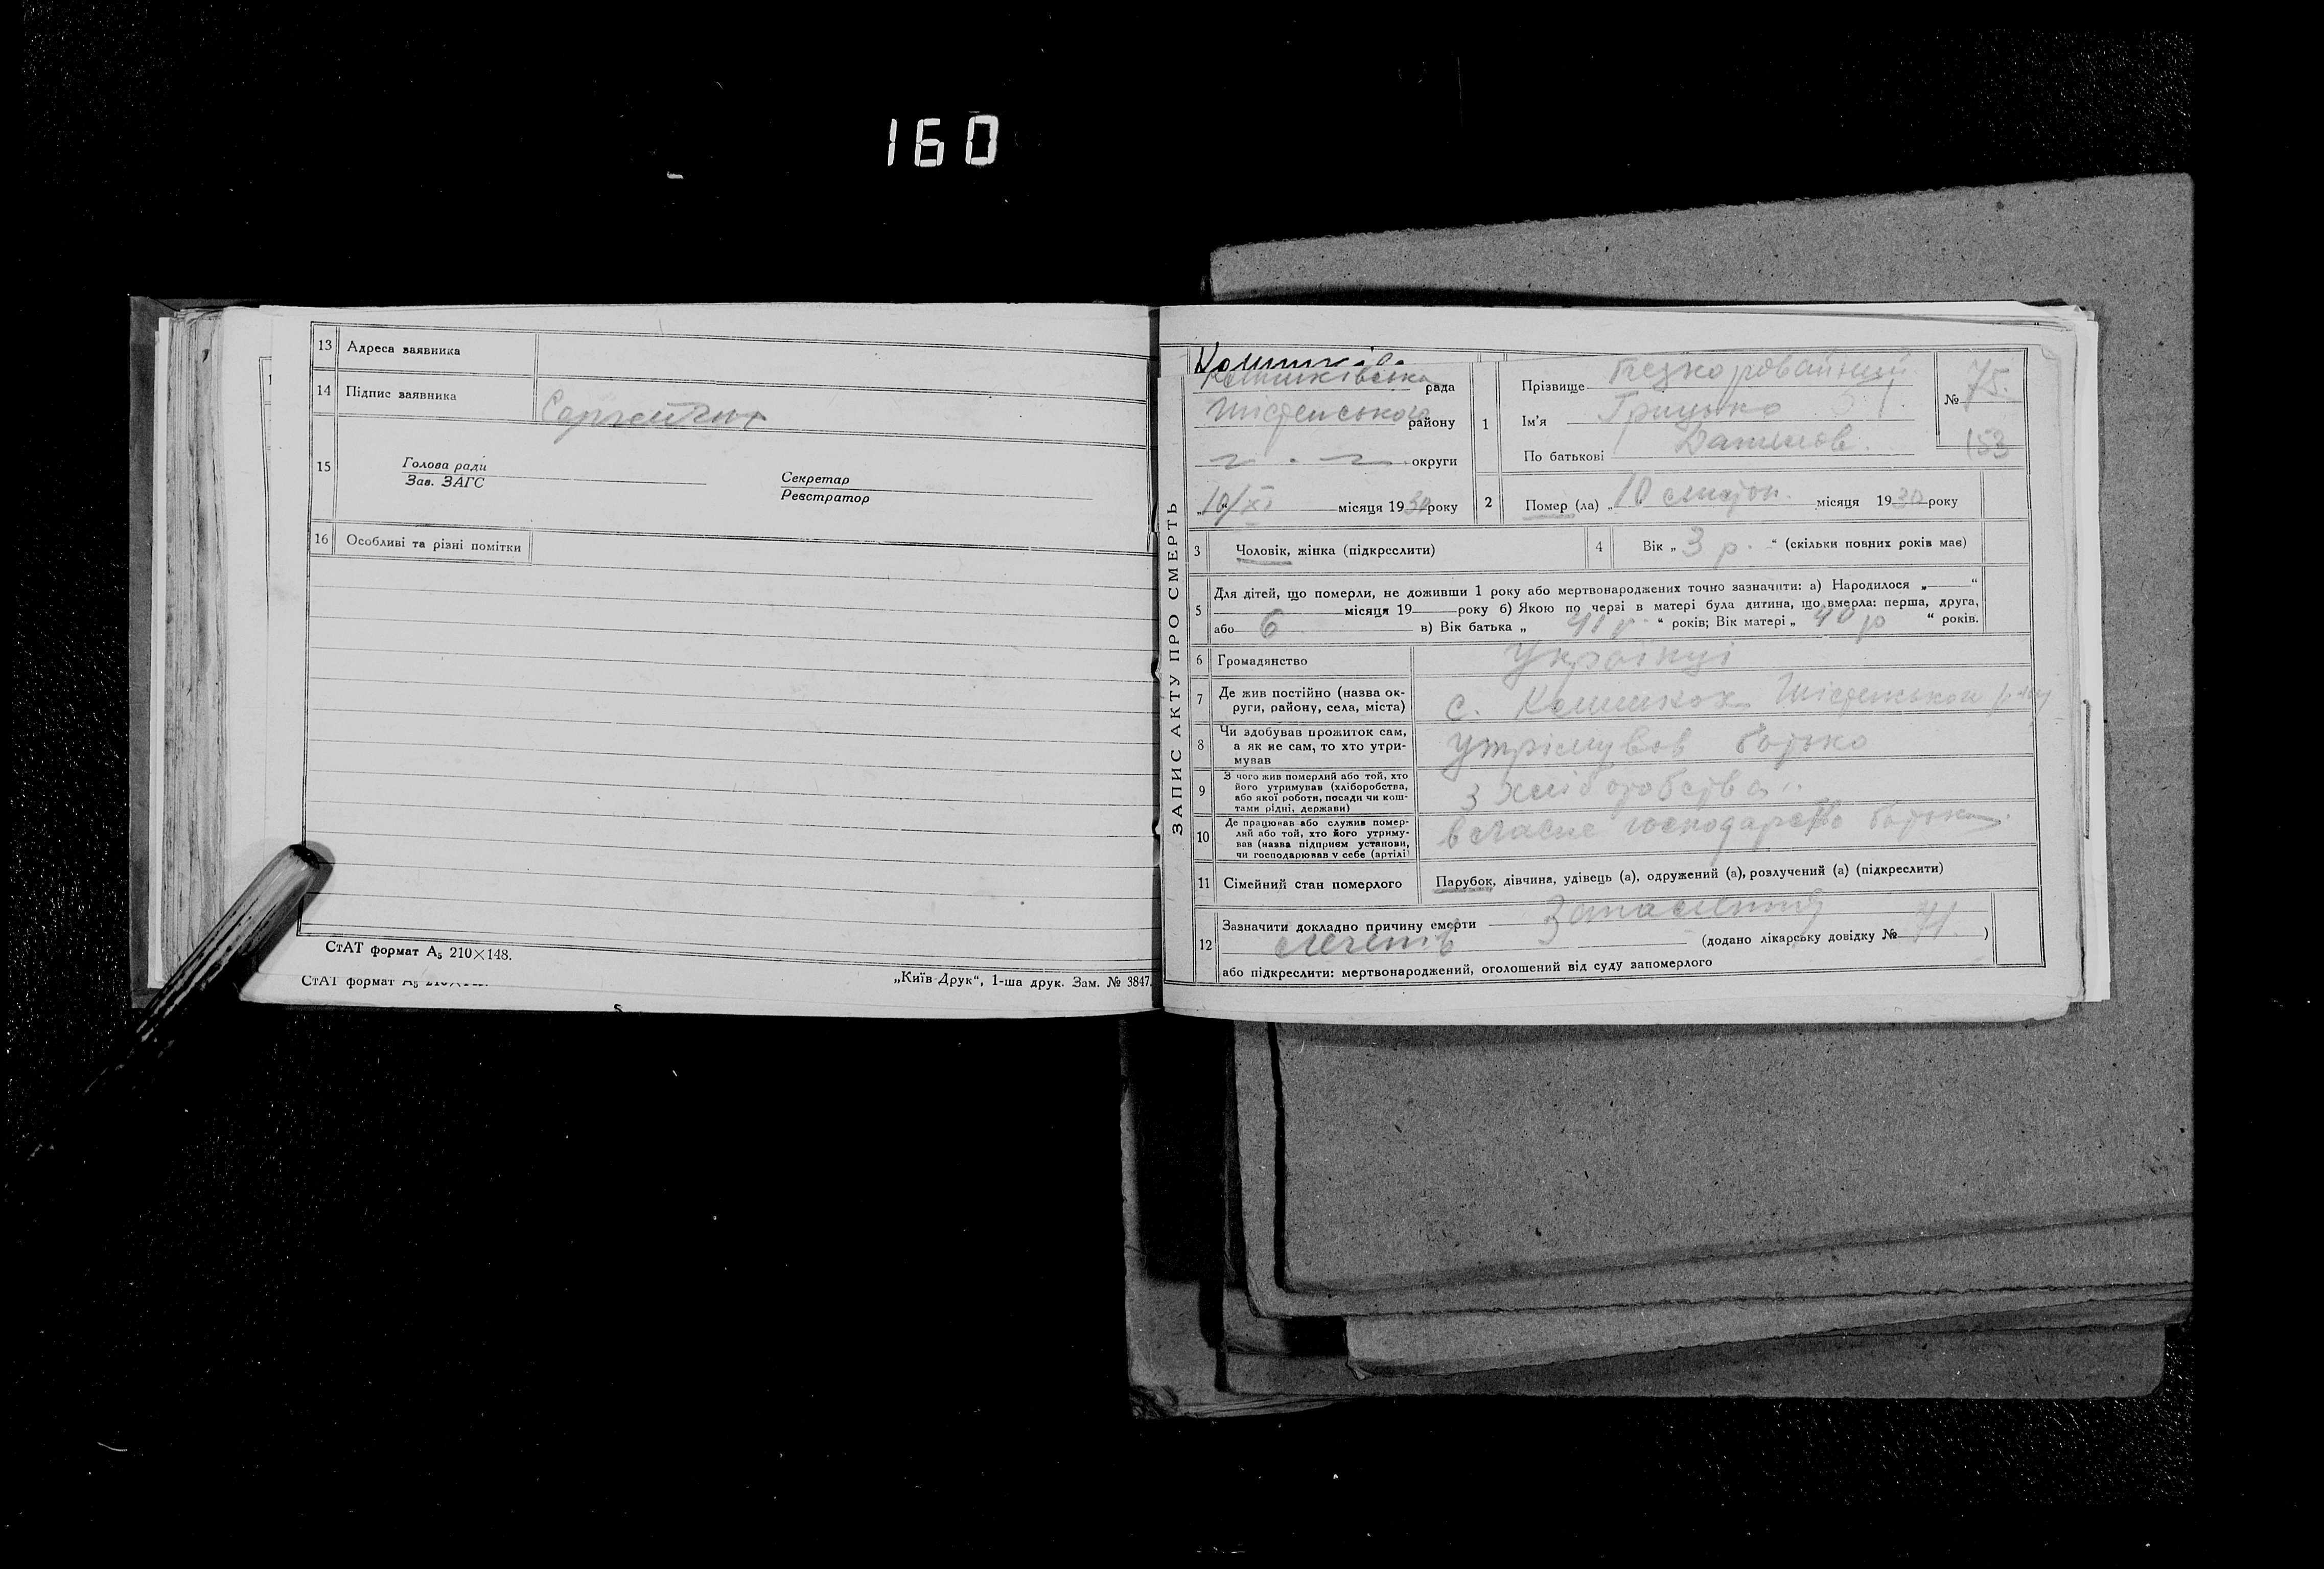 160
13 Адреса заявника
14 Підпис заявника
15 Голова ради
Зав. ЗАГС
Секретар
Реєстратор
16 Особливі та різні помітки
СтАТ формат А₅ 210×148.
СтАТ формат А₅
„Київ-Друк“, 1-ша друк. Зам. № 3847.
ЗАПИС АКТУ ПРО СМЕРТЬ
рада
району
округи
„10/XI місяця 1930 року
1 Прізвище Безкоровайний
Ім'я Грицько
По батькові Данилов.
№ 75.
153
2 Помер (ла) „10 листоп. місяця 1930 року
3 Чоловік, жінка (підкреслити)
4 Вік „ 3 р. “ (скільки повних років має)
5 Для дітей, що померли, не доживши 1 року або мертвонароджених точно зазначити: а) Народилося „ “
місяця 19 року б) Якою по черзі в матері була дитина, що вмерла: перша, друга,
або 6 в) Вік батька „ 41 р. “ років; Вік матері „ 40 р “ років.
6 Громадянство Українці
7 Де жив постійно (назва ок-
руги, району, села, міста)
с.
8 Чи здобував прожиток сам,
а як не сам, то хто утри-
мував
Утрімував батько
9 З чого жив померлий або той, хто
його утримував (хліборобства,
або якої роботи, посади чи кош-
тами рідні, держави)
з хліборобства
10 Де працював або служив помер-
лий або той, хто його утриму-
вав (назва підприєм установи,
чи господарював у себе (артілі)
власне господарство батька
11 Сімейний стан померлого
Парубок, дівчина, удівець (а), одружений (а), розлучений (а) (підкреслити)
12 Зазначити докладно причину смерти Запаленння
легенів (додано лікарську довідку № 71.)
або підкреслити: мертвонароджений, оголошений від суду запомерлого